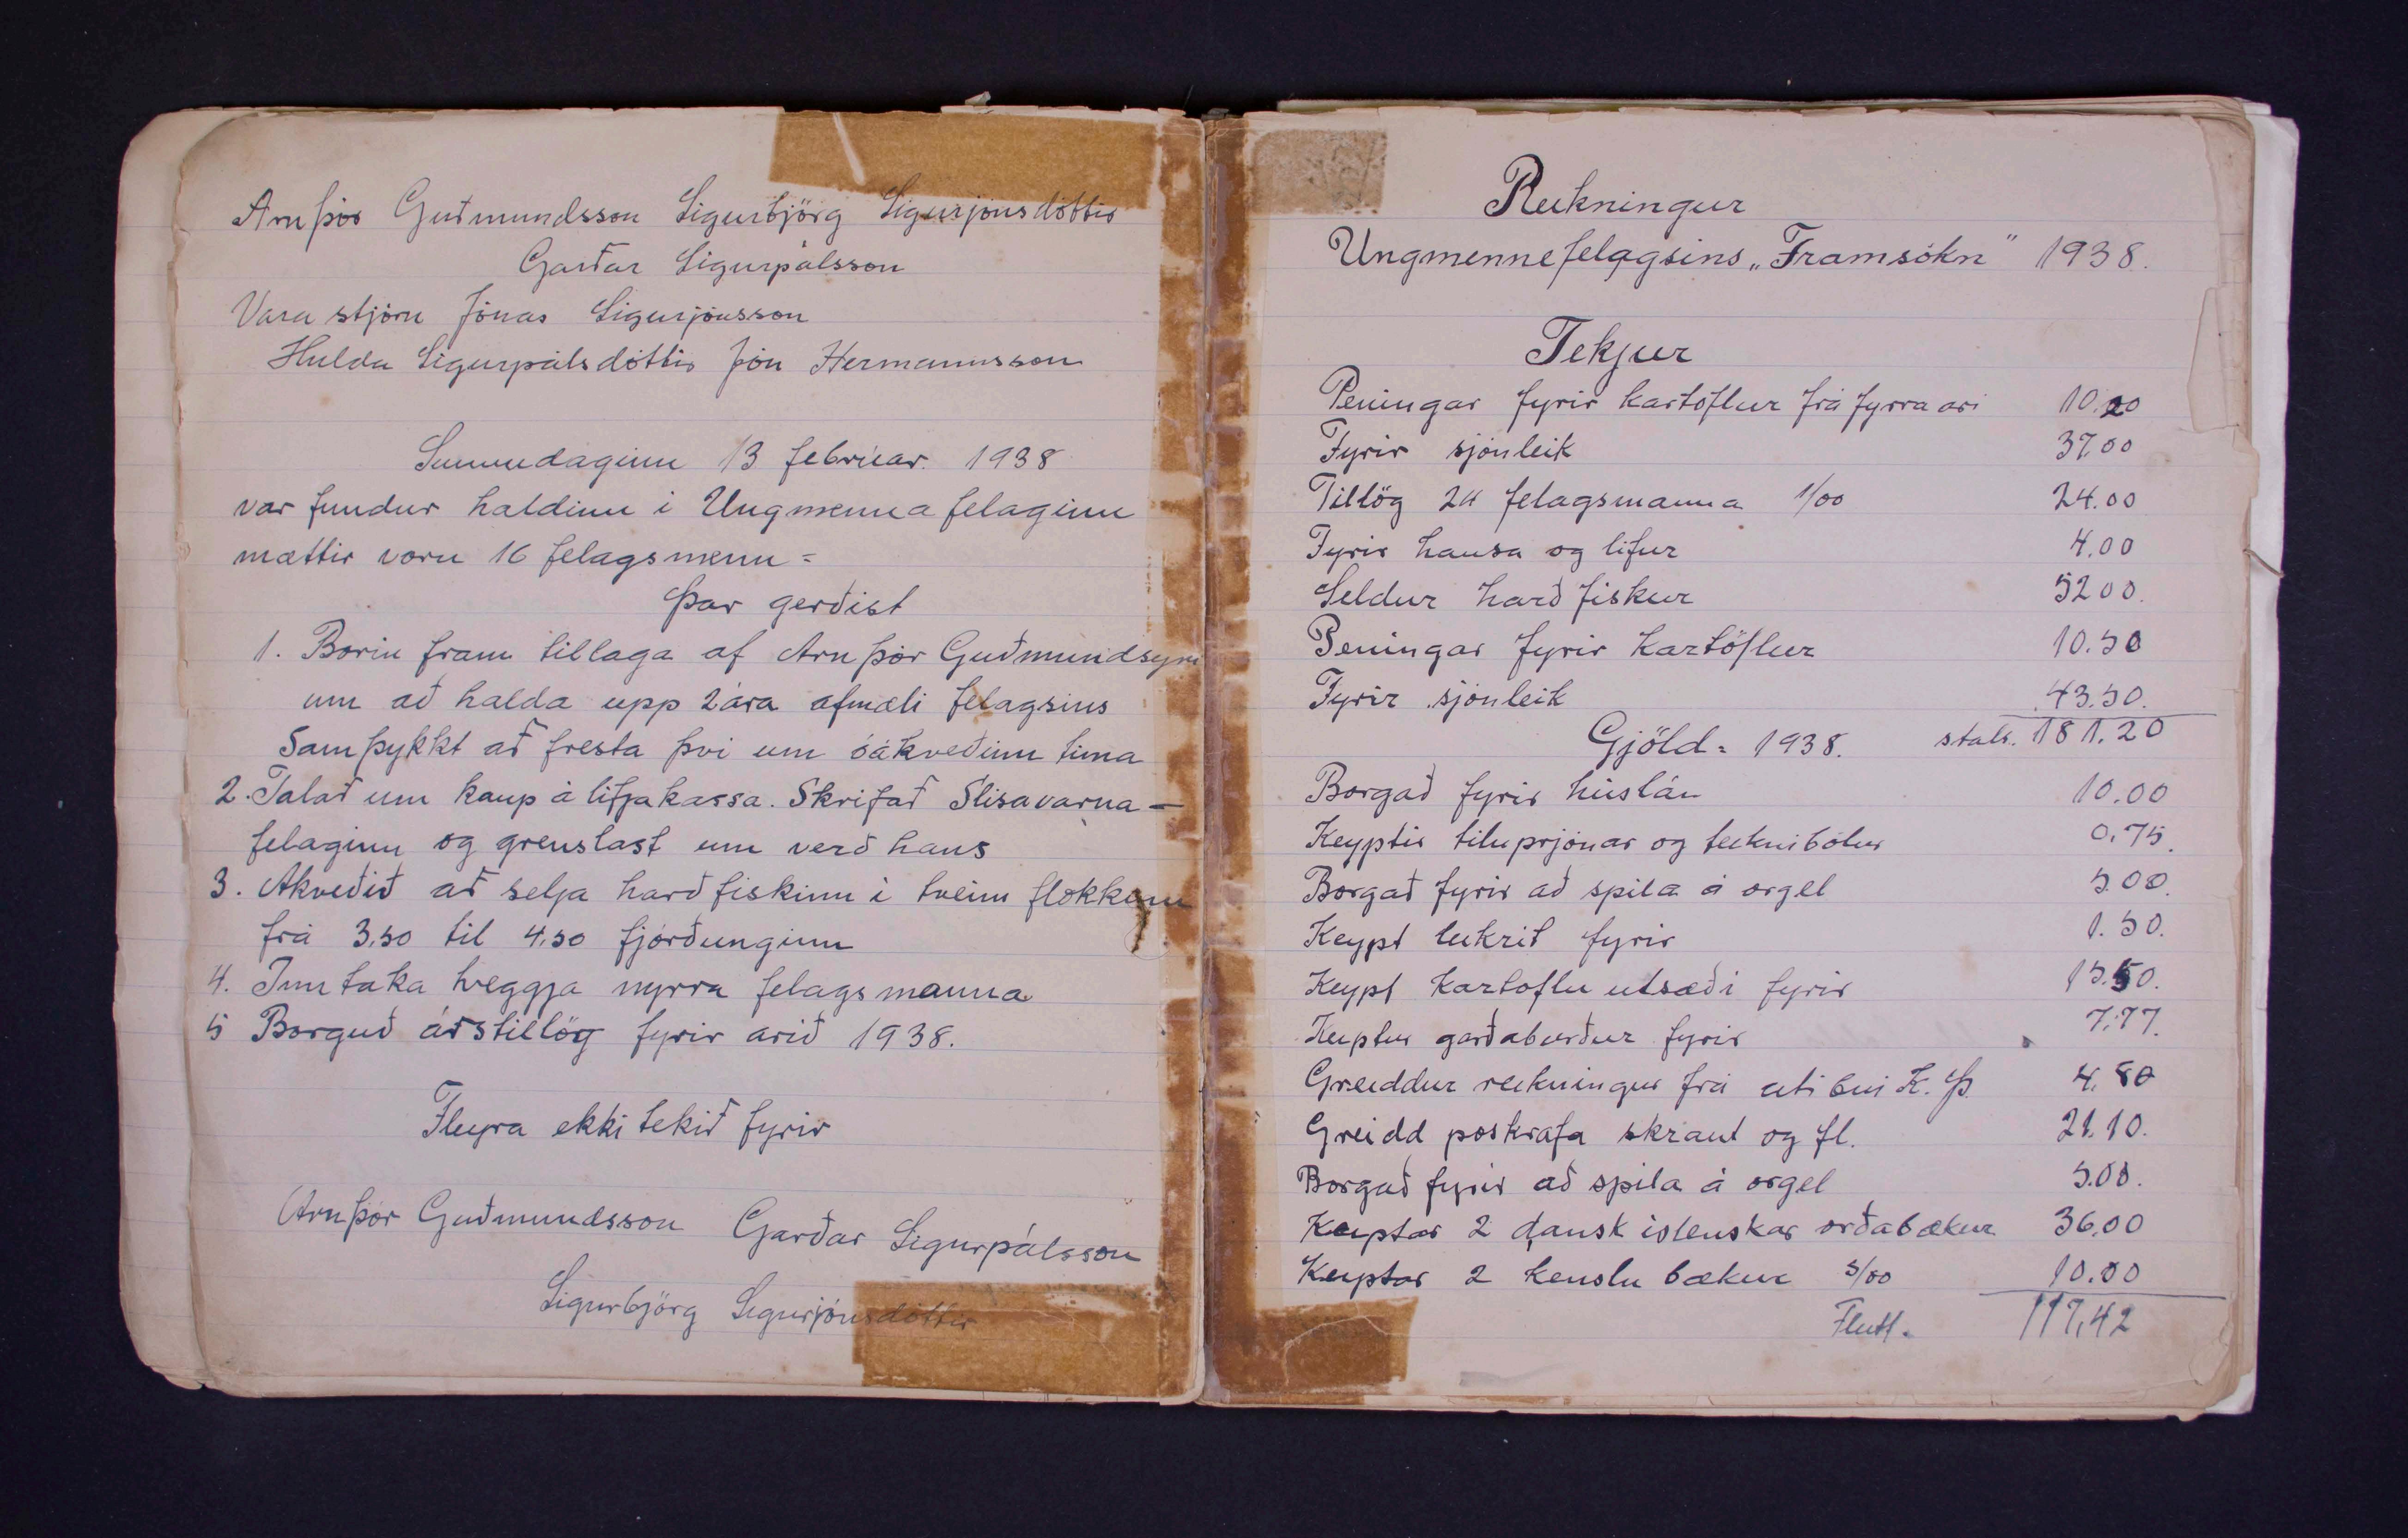 Arnþór Guðmundsson Sigurbjörg Sigurjónsdóttir
Garðar Sigurpálsson
Vara stjórn Jónas Sigurjónsson
Hulda Sigurpálsdóttir Jón Hermannsson
Sunnudaginn 13 febrúar. 1938
var fundur haldinn i Ungmenna felaginu
mættir voru 16 felagsmenn =
Þar gerðist
1. Borin fram tillaga af Arnþór Guðmundsyni
um að halda upp 2 ára afmæli felagsins
Samþykkt að fresta þvi um óákveðinn tima
2. Talað um kaup á lifjakassa. Skrifað Slisavarna-
felaginu og grenslast um verð hans
3. Akveðið að selja harðfiskinn i tveim flokkum
frá 3.50 til 4.50 fjórðunginn
4. Inntaka tveggja nyrra felagsmanna
5 Borguð árstillög fyrir arið 1938.
Fleyra ekki tekið fyrir
Arnþór Guðmundsson Garðar Sigurpálsson
Sigurbjörg Sigurjónsdóttir
Reikningur
Ungmennefelagsins „Framsókn" 1938.
Tekjur
Peningar fyrir kartoflur frá fyrra ari 10.20
Fyrir sjónleik 37.00
Tillög 24 felagsmanna 1/00 24.00
Fyrir hausa og lifur 4.00
Seldur harð fiskur 52 00.
Peningar fyrir Kartöflur 10.50
Fyrir sjónleik 43.50.
Gjöld = 1938. stals. 181.20
Borgað fyrir húslán 10.00
Keyptir tituprjónar og teiknibólur 0.75.
Borgað fyrir að spila á orgel 5.00.
Keypt leikrit fyrir 1.50.
Keypt Kartoflu utsæði fyrir 15.50.
Keiptur garðaburður fyrir 7.77.
Greiddur reikningur frá uti búi K. Þ. 4.80
Greidd poskrafa skraut og fl. 21.10.
Borgað fyrir að spila á orgel 5.00.
Keiptar 2 dansk islenskar orðabækur 36.00
Keyptar 2 kenslu bækur 5/00 10.00
Flutt. 117,42